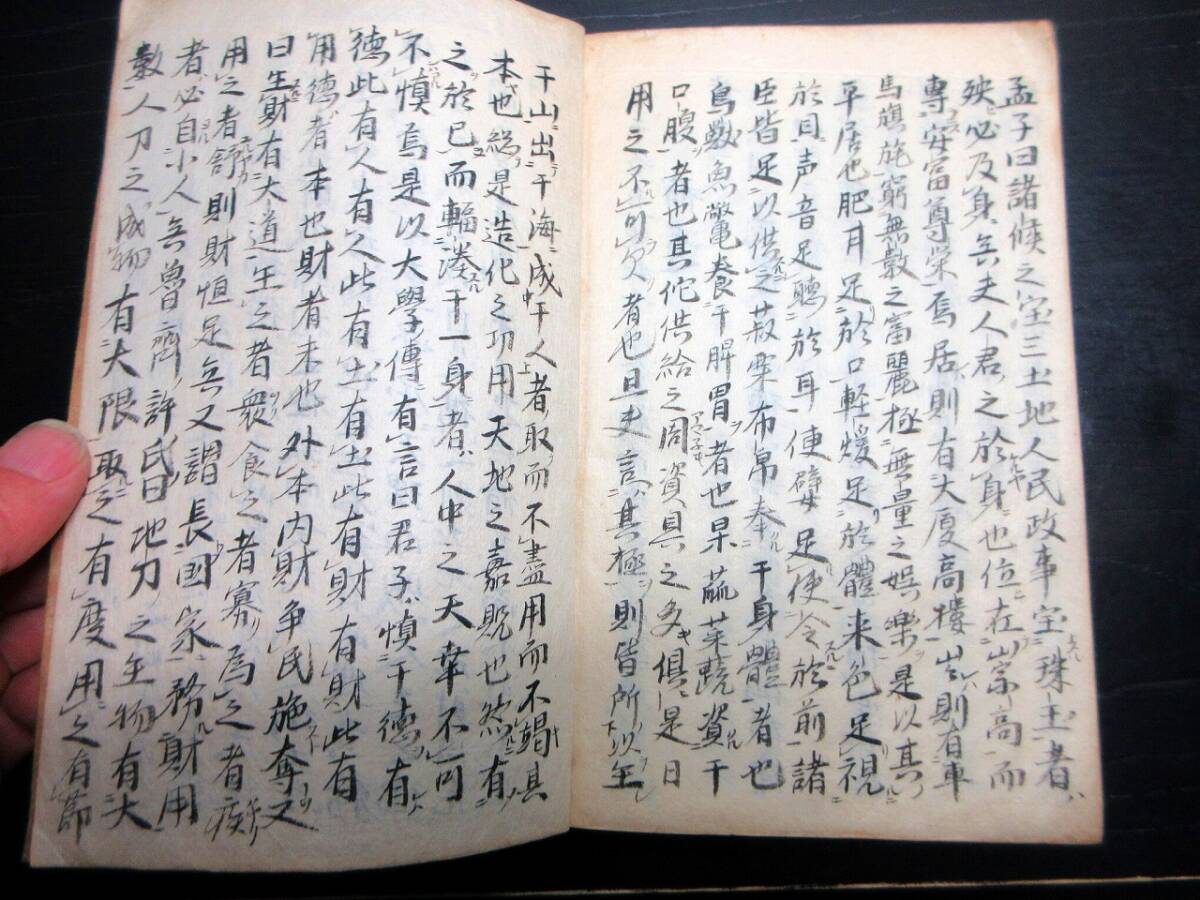 孟子曰諸候之宝三土地人民政事宝珠玉者
殃必及身矣夫人君之於身也位在崇高而
專安富尊栄焉居則有大厦高樓出則有車
馬旗旄窮無數之富麗極無量之娯樂是以其
平居也肥甘足於口軽煖足於體来色足視
於目声音足聴於耳便嬖足使令於前諸
臣皆足以供之菽粟布帛奉于身體者也
鳥獸魚鼈養于脾胃者也果蓏菜蔬資于
口腹者也其佗供給之周資具之多俱是日
用之不可欠者也且夫言其極則皆所以生
于山出于海成于人者取而不盡用而不竭其
本也総是造化之功用天地之嘉貺也然有
之於己而輻湊于一身者人中之天幸不可
不慎焉是以大學傳有言曰君子慎于德有
德此有人有人此有土有土此有財有財此有
用德者本也財者末也外本内財争民施奪又
曰生財有大道生之者衆食之者寡為之者疾
用之者舒則財恒足矣又謂長國家務財用
者必自小人矣魯齋許氏曰地力之生物有大
數人力之成物有大限取之有度用之有節